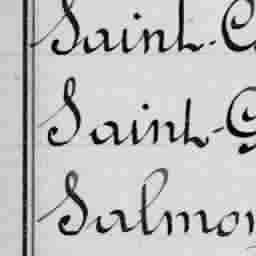 Saint-C
Saint-G
Salmon